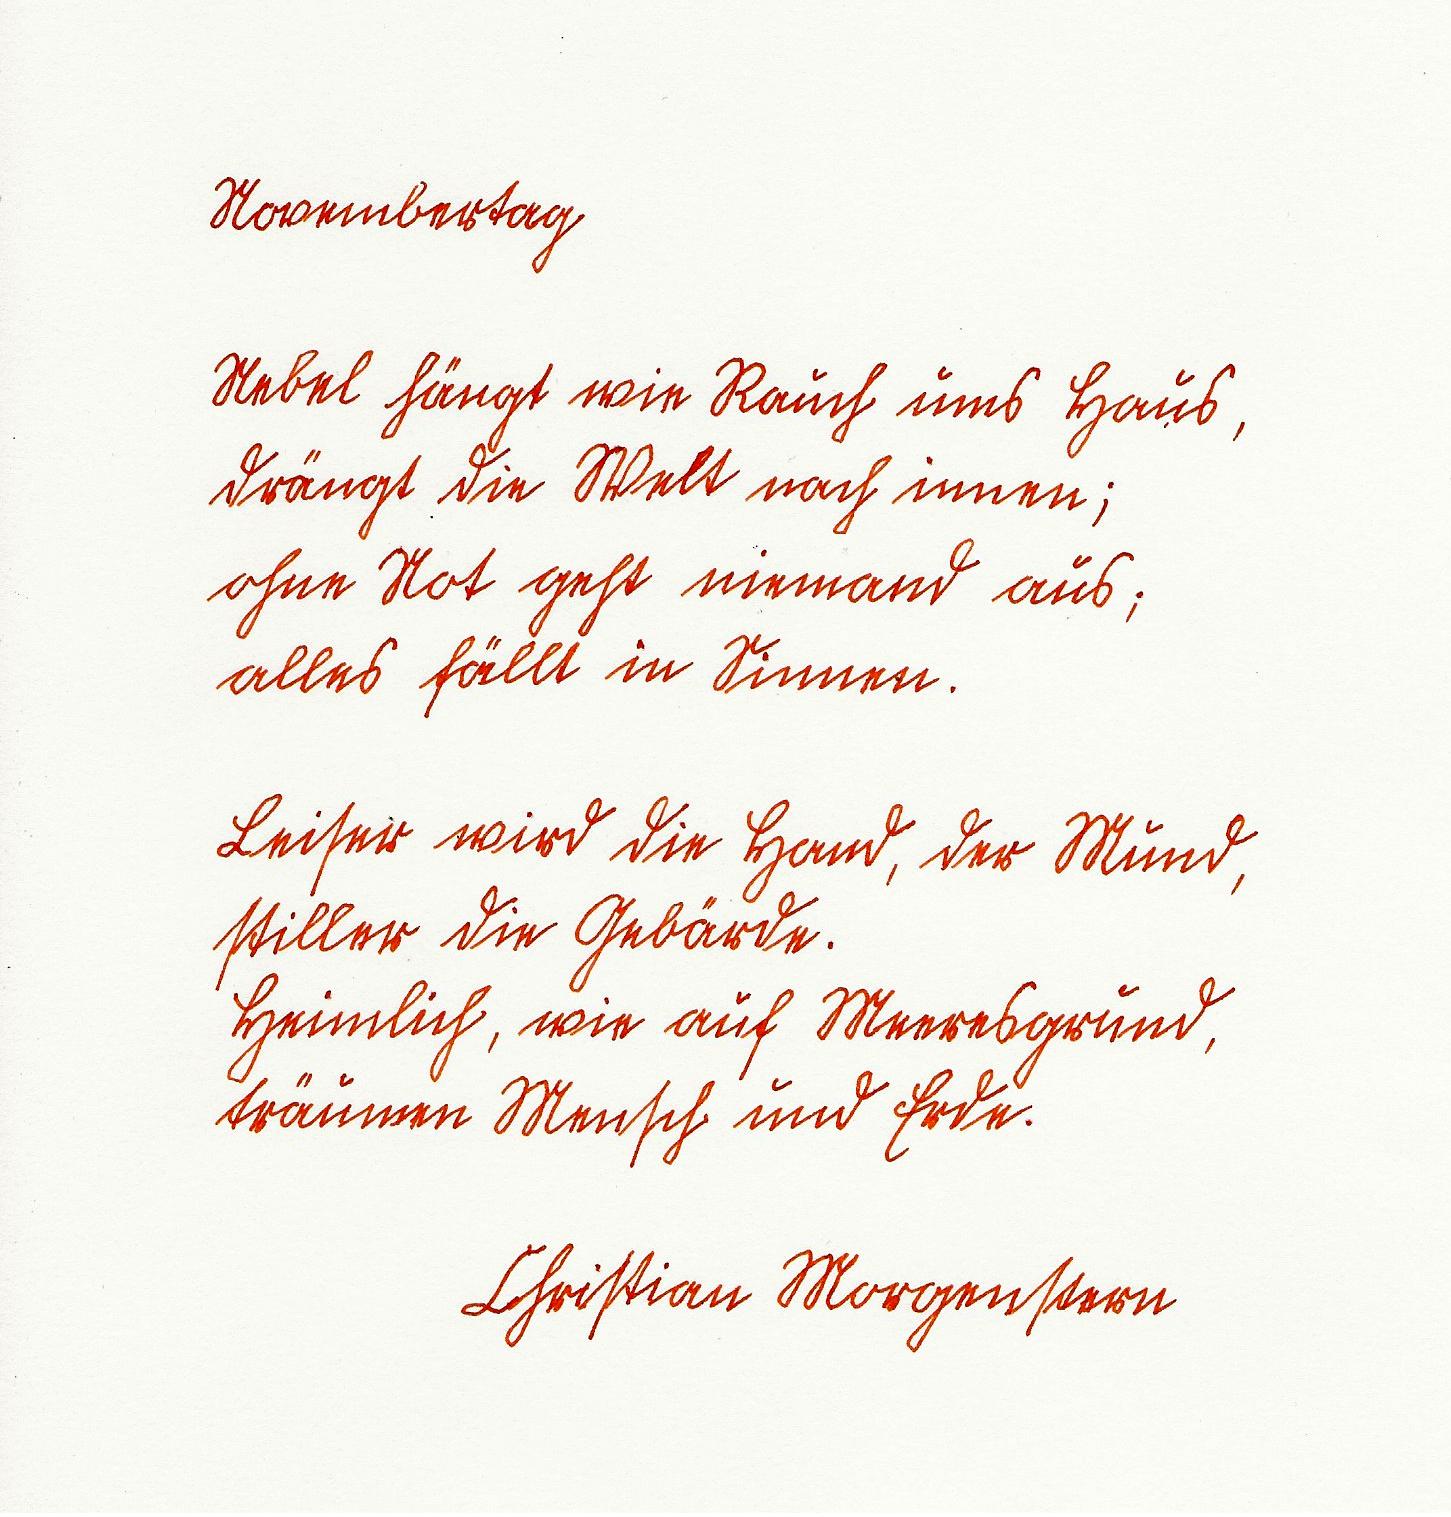 Novembertag
Nebel hängt wie Rauch ums Haus,
drängt die Welt nach innen;
ohne Not geht niemand aus;
alles fällt in Sinnen.
Leiser wird die Hand, der Mund,
stiller die Gebärde.
Heimlich, wie auf Meeresgrund,
träumen Mensch und Erde.
Christian Morgenstern